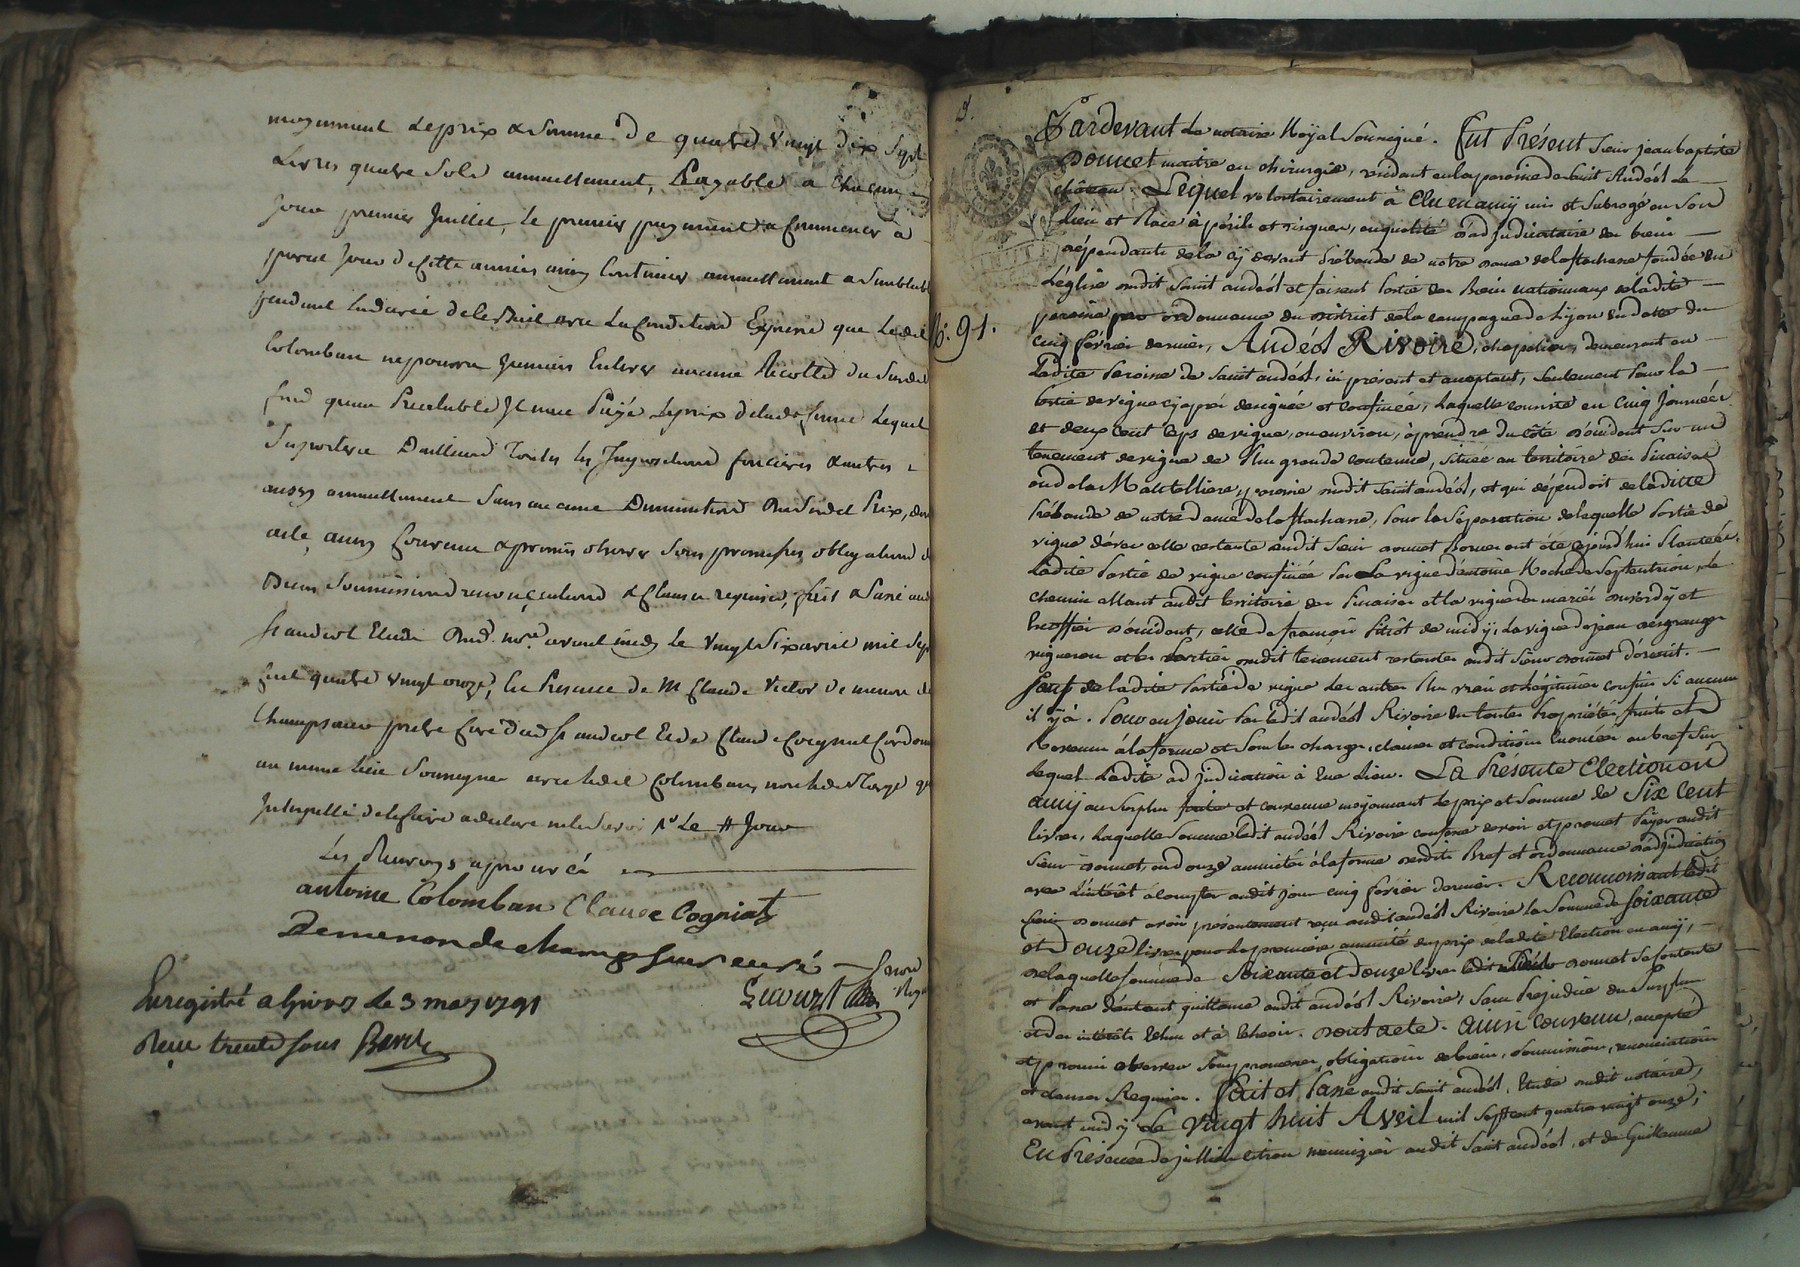 moyennent le prix & somme de quatre vingt dix sept
Livres quatre sols annuellement, Payable a chacun
Jour premier Juillet, le premier payement a commencer a
pareil Jour de Cette année ainsy Continuer annuellement a semblable
pendant la durée de le Bail avec la Condition Expresse que ledit
Colomban ne pourra Jamais Enlever aucune Récolte du susdit
fond quau Préalable Il naie Payé le prix de lad. ferme Lequel
Suportera Dailleurs Toutes les Impositions foncieres & autres
aussy annuellement Sans aucune Diminution du susdit Prix, dont
acte, ainsy Convenu & promis observer sous promesses obligations de
Biens Soumissions renonciations & Clauses requises, fait & Passé aud.
St andeol Etude Dud. nre. avant midy Le vingt Six avril mil sept
Cent quatre vingt onze, En Presence de M Claude Victor de menon de
Champsaur pretre Curé dud St andeol Et de Claude Cognat Cordonnier
au meme lieu Soussignes avec ledit Colomban, non led.
Interpellé de le faire a declare ne le Savoir
Les Renvoys aprouvés
antoine Colomban Claude Cogniat
Demenon de champsaur curé
Lecourt
Enregistré a Givors Le 3 may 1791
Reçu trente sous
91.
Pardevant Le notaire Royal Soussigné. Fut Présent Sieur jean baptiste
Donnet maitre en chirurgie, residant en la paroisse de Saint Andéol Le
château. Lequel volontairement à Elu en amy mis et Subrogé en Son
Lieu et Place à périls et risques, en qualité d'adjudicataire des biens
dépendants de la cy devant Prébande de notre Dame de la flachere fondée en
L'église dudit Saint andéol et faisant Partie des Biens nationnaux de ladite
paroisse par ordonnance du District de la campagne de Lyon en date du
cinq février dernier, Andéol Rivoire, chapelier, demeurant en
Ladite Paroisse de Saint andéol, ici présent et acceptant, seulement Pour la
Partie de vigne cy après designée et confinée, Laquelle consiste en cinq Journées
et deux cent ceps de vigne, ou environ, à prendre du côté d'occident Sur un
tenement de vigne de Plus grande contenue, située au territoire des Pinaises
ou de la Mattelliere, paroisse dudit Saint andéol, et qui dépendoit de laditte
Prébande de notre Dame de la flachere, Pour la Séparation de laquelle Partie de
vigne d'avec celle restante audit Sieur Donnet Bornes ont été cejourd'hui Plantées,
Ladite Partie de vigne confinée Par La vigne d'antoine Roche de Septentrion, Le
chemin allant audit territoire des Pinaises et la vigne de mariés et
d'occident, celle de françois Pitiot de midÿ, La vigne de jean desgranges
vigneron et les Parties dudit tenement restantes audit Sieur Donnet d'orient.
Sauf de ladite Partie de vigne Les autres Plus vrais et Légitimes confins Si aucuns
il ÿ à. Pour en jouir Par Ledit andéol Rivoire en toutes Propriétés fruits et
Revenus à la forme et Sous les charges, clauses et conditions Enoncées au bref Sur
Lequel Ladite adjudication à Eue Lieu. La Présente Election en
amÿ au Surplus faite et convenue moyennant Le prix et Somme de Six Cent
livres, Laquelle Somme Ledit andéol Rivoire confesse devoir et promet Payer audit
Sieur Donnet, en douze annuités à la forme desdits Bref et ordonnance d'adjudication
avec L'intérêt à compter audit jour cinq février dernier. Reconnoissant Ledit
Sieur Donnet avoir présentement reçu audit andéol Rivoire la Somme de Soixante
et Douze livres pour la premiere annuité du prix de ladite Election en amÿ,
de laquelle Somme de Soixante et Douze livres Ledit Sieur Donnet Se contente
et Passe d'autant quittance audit andéol Rivoire, Sans Préjudice du Surplus
et des intérêts Echus et à Echeoir. Dont acte. Ainsi convenu, accepté
et promis observer Sous promesses, obligations de biens, Soumissions, renonciations
et clauses Requises. Fait et Passé audit Saint andéol, Etude dudit notaire,
avant midÿ Le vingt huit Avril mil Sept cent quatre vingt onze;
En Présence de jullien citron menuizier audit Saint andéol, et de Guillaume